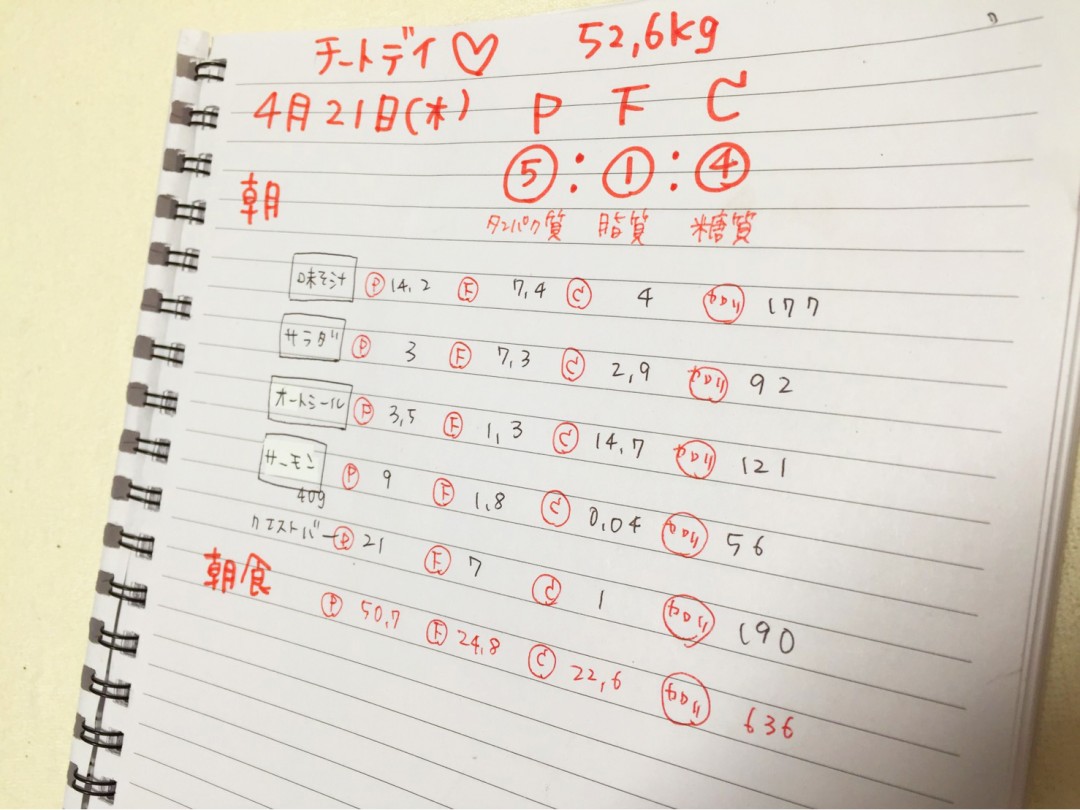 チートデイ♡ 52,6kg
4月21日(木) P F C
⑤:①:④
朝 タンパク質 脂質 糖質
味そ汁 Ⓟ 14,2 Ⓕ 7,4 Ⓒ 4 カロリー 177
サラダ Ⓟ 3 Ⓕ 7,3 Ⓒ 2,9 カロリー 92
オートミール Ⓟ 3,5 Ⓕ 1,3 Ⓒ 14,7 カロリー 121
サーモン Ⓟ 9 Ⓕ 1,8 Ⓒ 0,04 カロリー 56
40g
クエストバー Ⓟ 21 Ⓕ 7 Ⓒ 1 カロリー 190
朝食 Ⓟ 50,7 Ⓕ 24,8 Ⓒ 22,6 カロリー 636